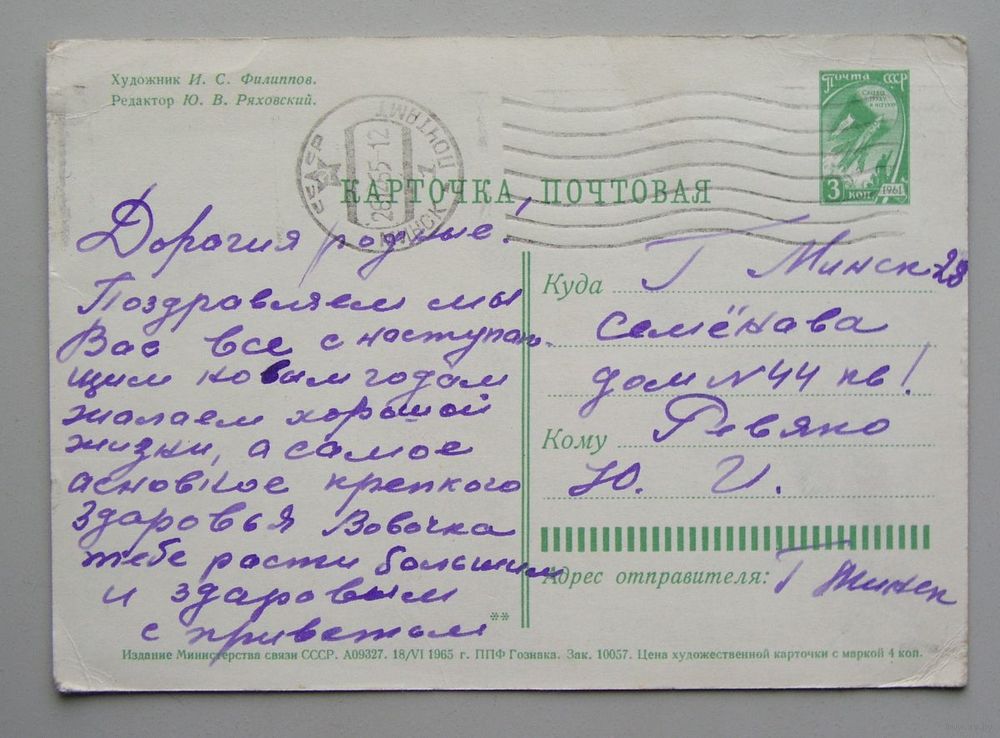 Художник И. С. Филиппов.
Редактор Ю. В. Ряховский.
СССР
МИНСК ПОЧТАМТ
1965-12
Почта СССР
СЛАВА
ТРУДУ
И НАУКЕ
3 КОП
1961
КАРТОЧКА ПОЧТОВАЯ
Дорогия родные.
Поздравляем мы
Вас все с наступаю-
щим новым годам
жалаем хорошой
жизни, а самое
асновное крепкого
здаровья Вовочка
тебе расти большим
и здаровым
с приветам
Куда Г Минск-28
семёнава
дом N 44 кв 1
Кому Ревяко
Ю. И.
Адрес отправителя: Г Минск
**
Издание Министерства связи СССР. А09327. 18/VI 1965 г. ППФ Гознака. Зак. 10057. Цена художественной карточки с маркой 4 коп.